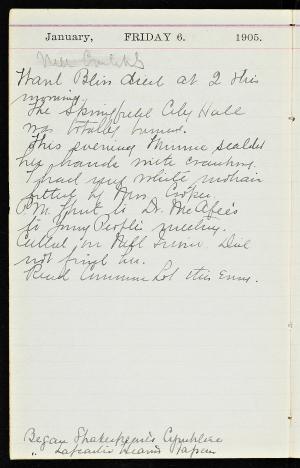 January, FRIDAY 6. 1905.
Bliss died at 2 this
morning.
The Springfield City Hall
was totally burned.
This evening Minnie scalded
her hands with cranberry.
I had my white mohair
fitted by Mrs. Cooper.
P.M. Went to Dr. McAfee's
to Young People's meeting.
Called on Nell Did
not find her.
Read this Eve.
Began Shakespeare's Cymbeline
" Lafcadio Hearn's Japan